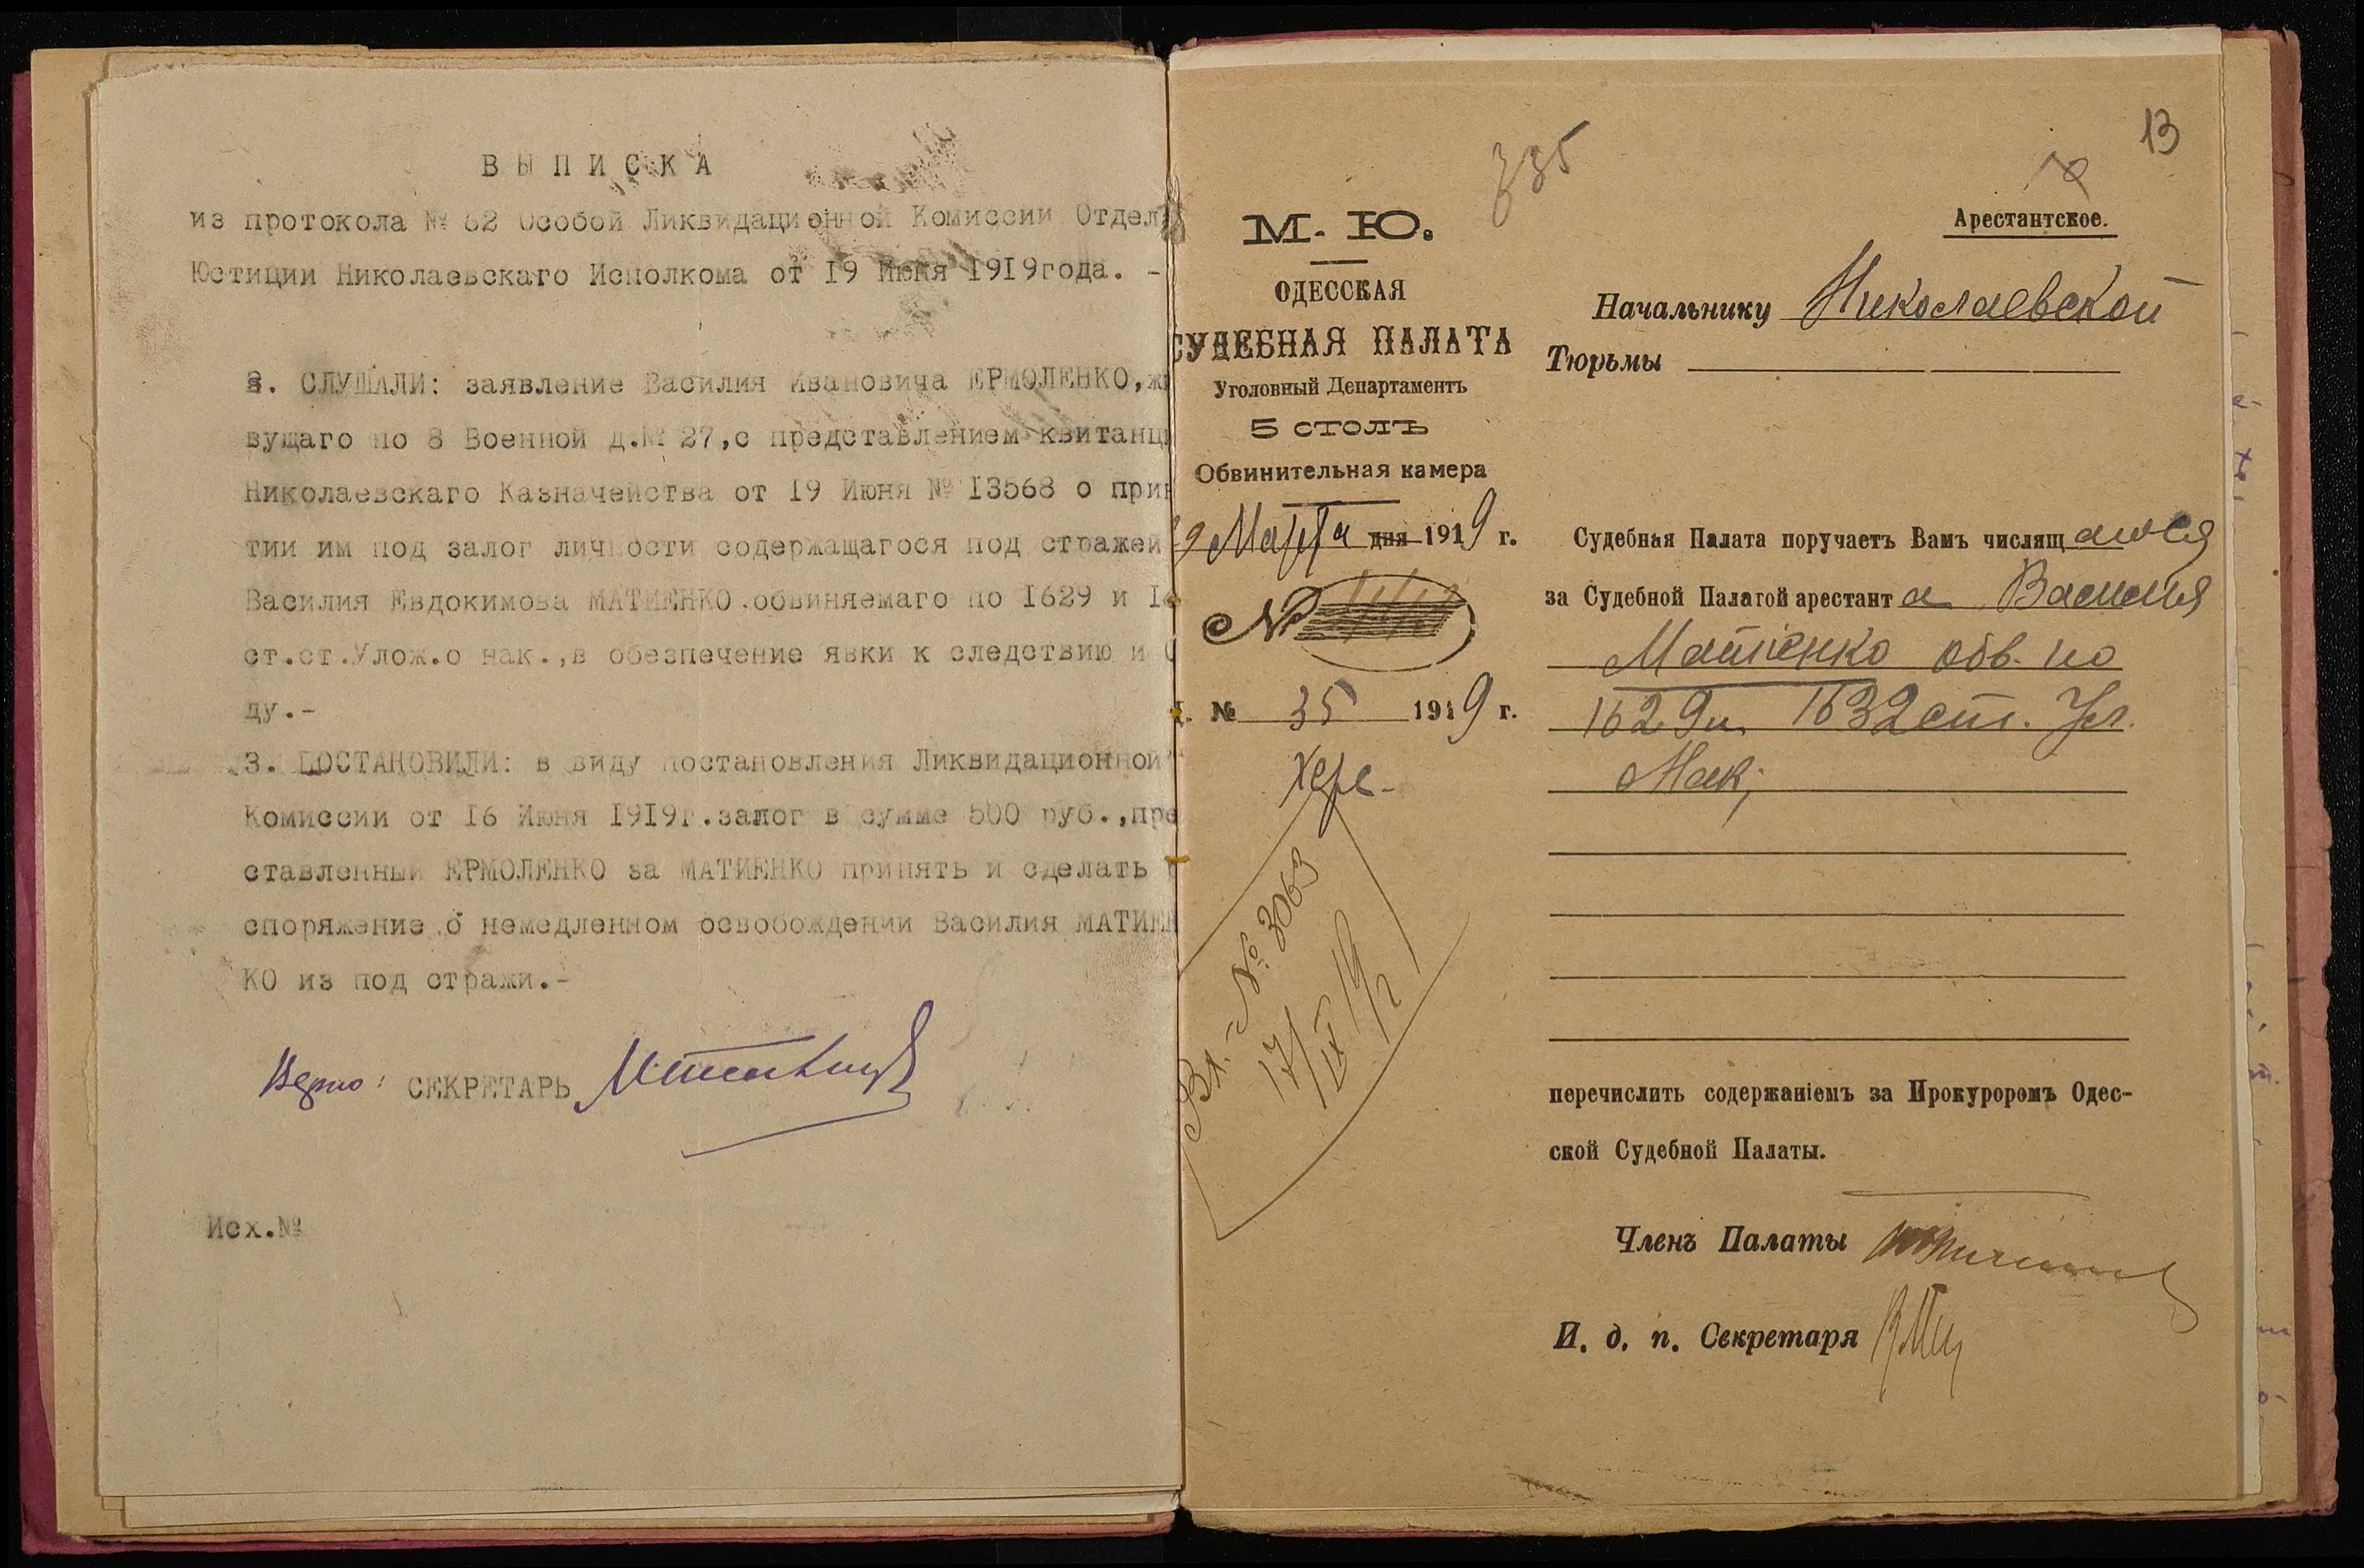 ВЫПИСКА
из протокола № 62 Особой Ликвидационной Комиссии Отдел
Юстиции Николаевскаго Исполкома от 19 Июня 1919года. -
СЛУШАЛИ: заявление Василия Ивановича ЕРМОЛЕНКО,жи
вущаго по 8 Военной д.№ 27,с представлением квитанци
Николаевскаго Казначейства от 19 Июня № 13568 о прин
тии им под залог личности содержащагося под стражей
Василия Евдокимова МАТИЕНКО.обвиняемаго по 1629 и 16
ст.ст.Улож.о нак.,в обезпечение явки к следствию и с
ду.-
3. ПОСТАНОВИЛИ: в виду постановления Ликвидационной
Комиссии от 16 Июня 1919г.залог в сумме 500 руб.,пре
ставленный ЕРМОЛЕНКО за МАТИЕНКО принять и сделать р
споряжение о немедленном освобождении Василия МАТИЕН
КО из под стражи.-
Верно: СЕКРЕТАРЬ
Исх.№
335
13
М. Ю.
ОДЕССКАЯ
СУДЕБНАЯ ПАЛАТА
Уголовный Департаментъ
5 столъ
Обвинительная камера
9 Марта дня 1919 г.
№
№ 35 1919 г.
Херс-
Вх. № 3063
17/IX 19 г
Арестантское.
Начальнику Николаевской
Тюрьмы
Судебная Палата поручаетъ Вамъ числящагося
за Судебной Палатой арестанта Василия
Матіенко обв. по
1629 и 1632 ст. Ул.
Нак;
перечислить содержаніемъ за Прокуроромъ Одес-
ской Судебной Палаты.
Членъ Палаты
И. д. п. Секретаря